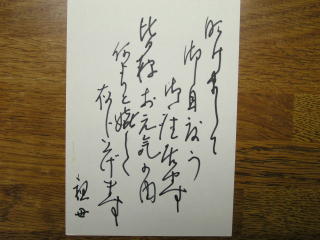 明けまして
御目出度う
御座居ます
皆々様お元気の由
何よりと嬉しく
存じ上げます
祖母